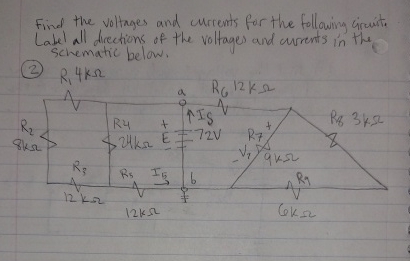 Find the voltages and currents for the following circuit.
Label all directions of the voltages and currents in the
schematic below.
②
R₁ 4kΩ
a
R₆ 12kΩ
R₂
8kΩ
R₄
24kΩ
+
E
72V
Is
R₇
+
- V₇
9kΩ
R₈ 3kΩ
R₃
12kΩ
R₅
12kΩ
I₅
b
R₉
6kΩ